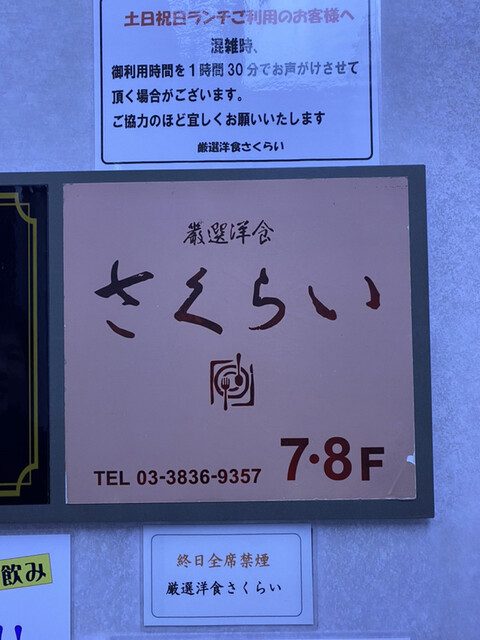 土日祝日ランチご利用のお客様へ
混雑時、
御利用時間を1時間30分でお声がけさせて
頂く場合がございます。
ご協力のほど宜しくお願いいたします
厳選洋食さくらい
嚴選洋食
さくらい
TEL 03-3836-9357
7·8F
終日全席禁煙
厳選洋食さくらい
飲み